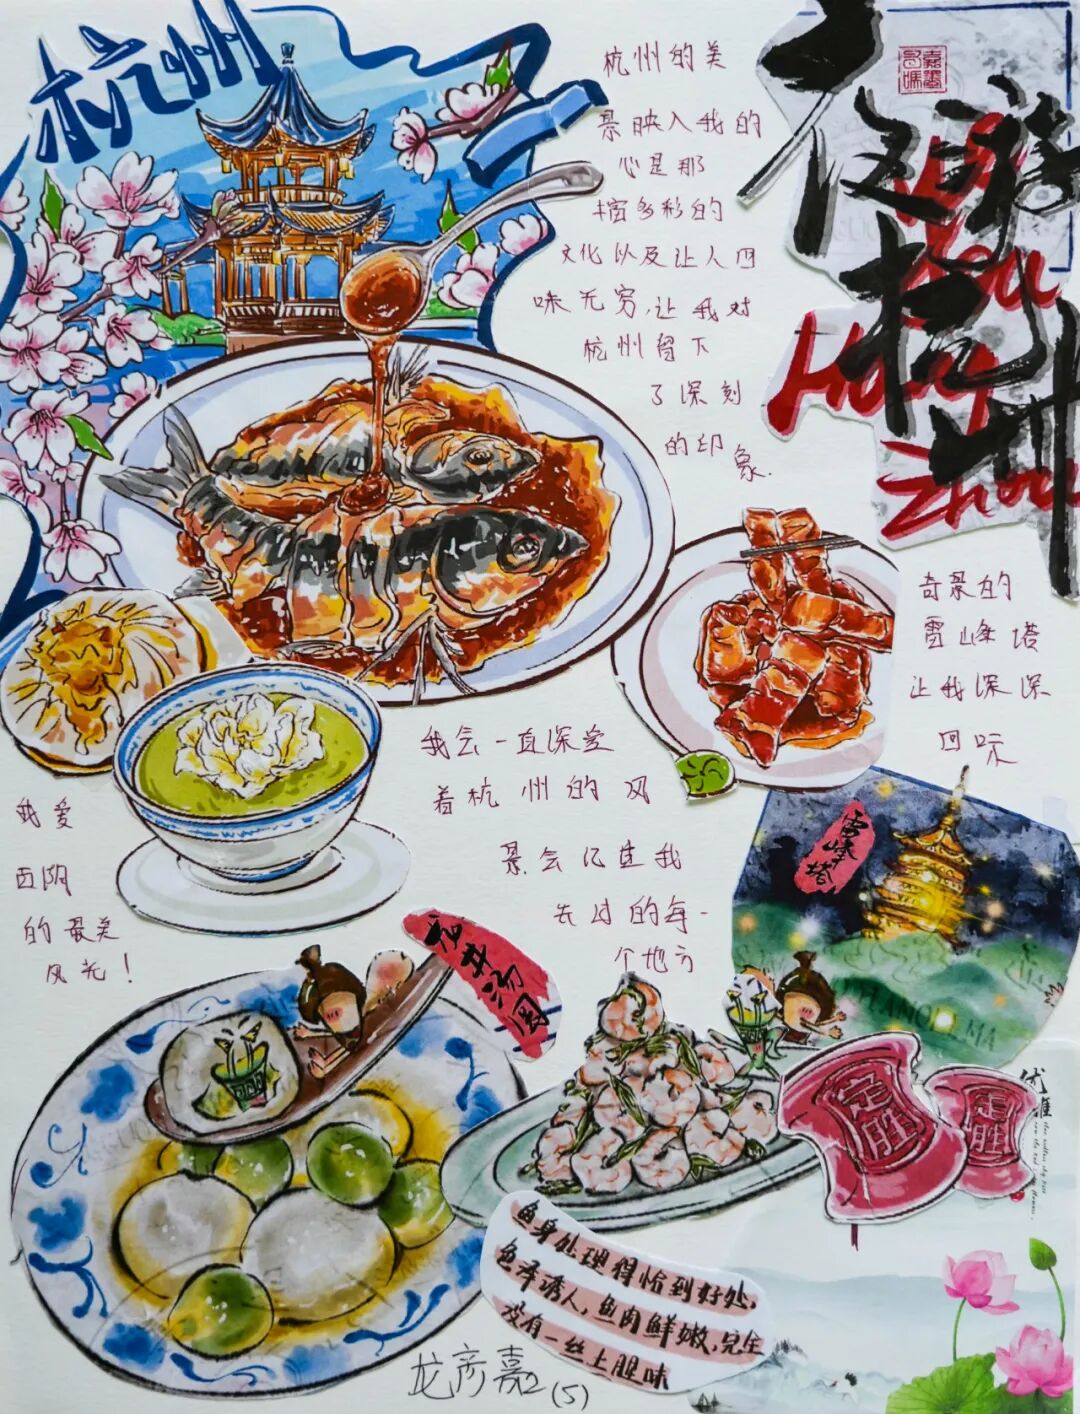 杭州
杭州的美
景映入我的
心是那
多彩的
文化以及让人回
味无穷,让我对
杭州留下
了深刻
的印
象.
杭州
Hang
Zhou
奇景的
雷峰塔
让我深深
回味
雷峰塔
我会一直深爱
着杭州的风
景会记住我
去过的每一
个地方
我爱
西湖
的最美
风光!
龙井汤圆
定胜
定胜
优雅
鱼身处理得恰到好处,
色泽诱人,鱼肉鲜嫩,完全
没有一丝土腥味
龙彦嘉2(5)